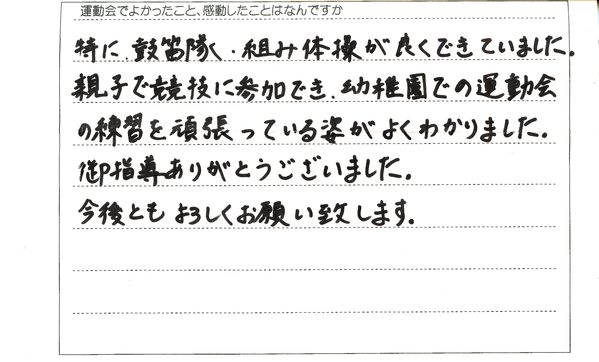 運動会でよかったこと、感動したことはなんですか
特に、鼓笛隊・組み体操が良くできていました。
親子で競技に参加でき、幼稚園での運動会
の練習を頑張っている姿がよくわかりました。
御指導ありがとうございました。
今後ともよろしくお願い致します。